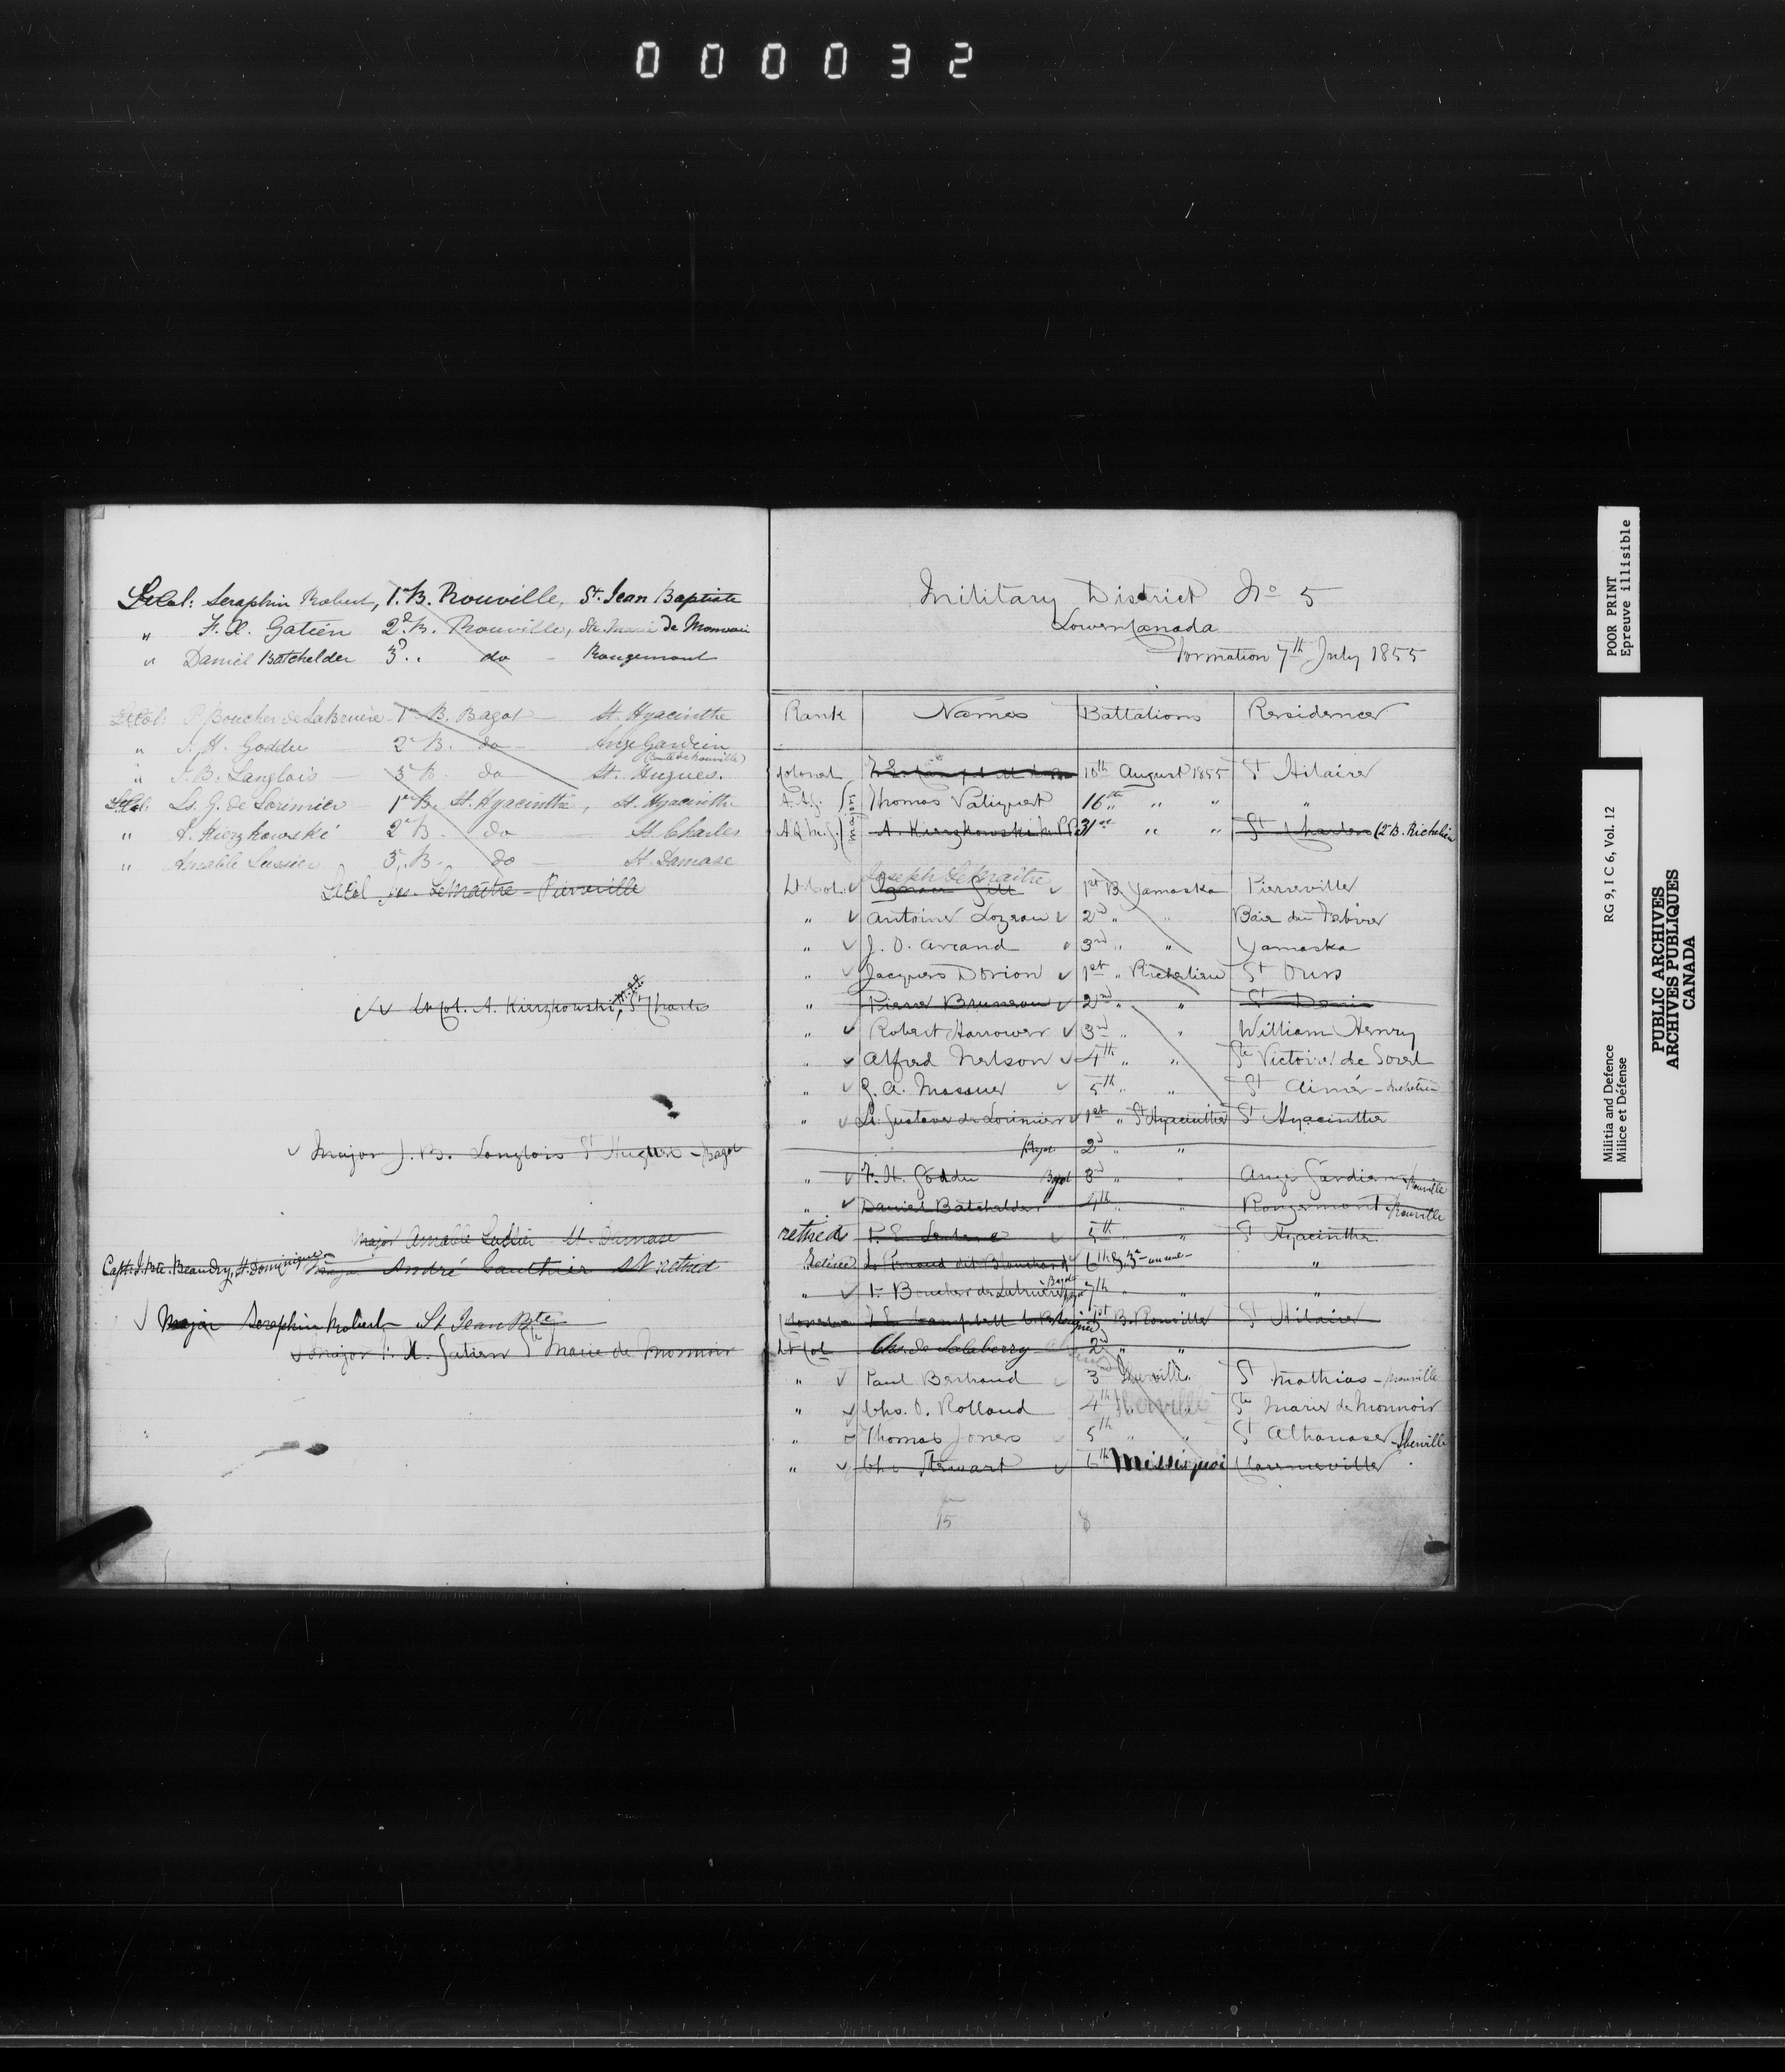 000032
Lt Col: Seraphin Robert, 1r. B. Rouville, St. Jean Baptiste
" F. X. Gatien 2d. B. Rouville, Ste. Marie De Monnoir
" Daniel Batchelder 3d .. do - Rougemont
Lt Col: P. Boucher de LaBruère - 1r B. Bagot - St. Hyacinthe
" H. Goddu 2r B. do - Ange Gardien
(Comté de Rouville)
" J. B. Langlois - 3r B. do St. Hugues.
Lt Col: Ls. G. de Lorimier - 1er B. St. Hyacinthe, St. Hyacinthe
" A. Kierzkowski 2r B. do St. Charles
" Amable Lussier 3r B. do - St. Damase
Lt Col Jos. LeMaître - Pierreville
Lt Col. A. Kierzkowski, St Charles
Major J. B. Langlois St Hugues - Bagot
Major Amable Lussier St. Damase
Capt. J. Bte. Beaudry, St. Dominique - Major André Gauthier retired
Major Seraphin Robert - St Jean Bte
Major F. X. Gatien Ste Marie de Monnoir
Military District No 5
Lower Canada
Formation 7th July 1855
Rank Names Battalions Residence
Colonel 16th August 1855 St Hilaire
A. A. G. Majors Thomas Valiquet 16th " " "
A. Q. M. G. A. Kierzkowski M.P.P. 31st " " St Charles (2r B. Richelieu
Joseph LeMaitre
Lt Col. Ignace Gill 1st B. Yamaska Pierreville
" Antoine Lozeau 2nd " " Baie du Febvre
" J. O. Arcand 3rd " " Yamaska
" Jacques Dorion 1st " Richelieu St Ours
" Pierre Bruneau 2nd " " St Denis
" Robert Harrower 3rd " " William Henry
" Alfred Nelson 4th " " Ste Victoire de Sorel
" G. A. Massue 5th " " St Aimé - Richelieu
" Ls. Gustave de Lorimier 1st " St Hyacinthe St Hyacinthe
Bagot 2d " "
" F. H. Goddu Bagot 3rd " " Ange Gardien Rouville
" Daniel Batchelder 4th " " Rougemont Rouville
retired P. E. Leclere 5th " " St Hyacinthe
Retired L. Renaud dit Blanchard 6th "
" P. Boucher de LaBruère Bagot 7th " " "
Colonel T. E. Campbell 1st B. Rouville St Hilaire
Lt Col Chs. de Salaberry 2nd " "
" Paul Bertrand 3rd Iberville St Mathias - Rouville
" Chs. O. Rolland 4th Iberville Ste Marie de Monnoir
" Thomas Jones 5th " " St Athanase - Iberville
" Chs Stewart 6th Missisquoi Clarenceville
15 8
POOR PRINT
Epreuve illisible
Militia and Defence RG 9, I C 6, Vol. 12
Milice et Défense
PUBLIC ARCHIVES
ARCHIVES PUBLIQUES
CANADA